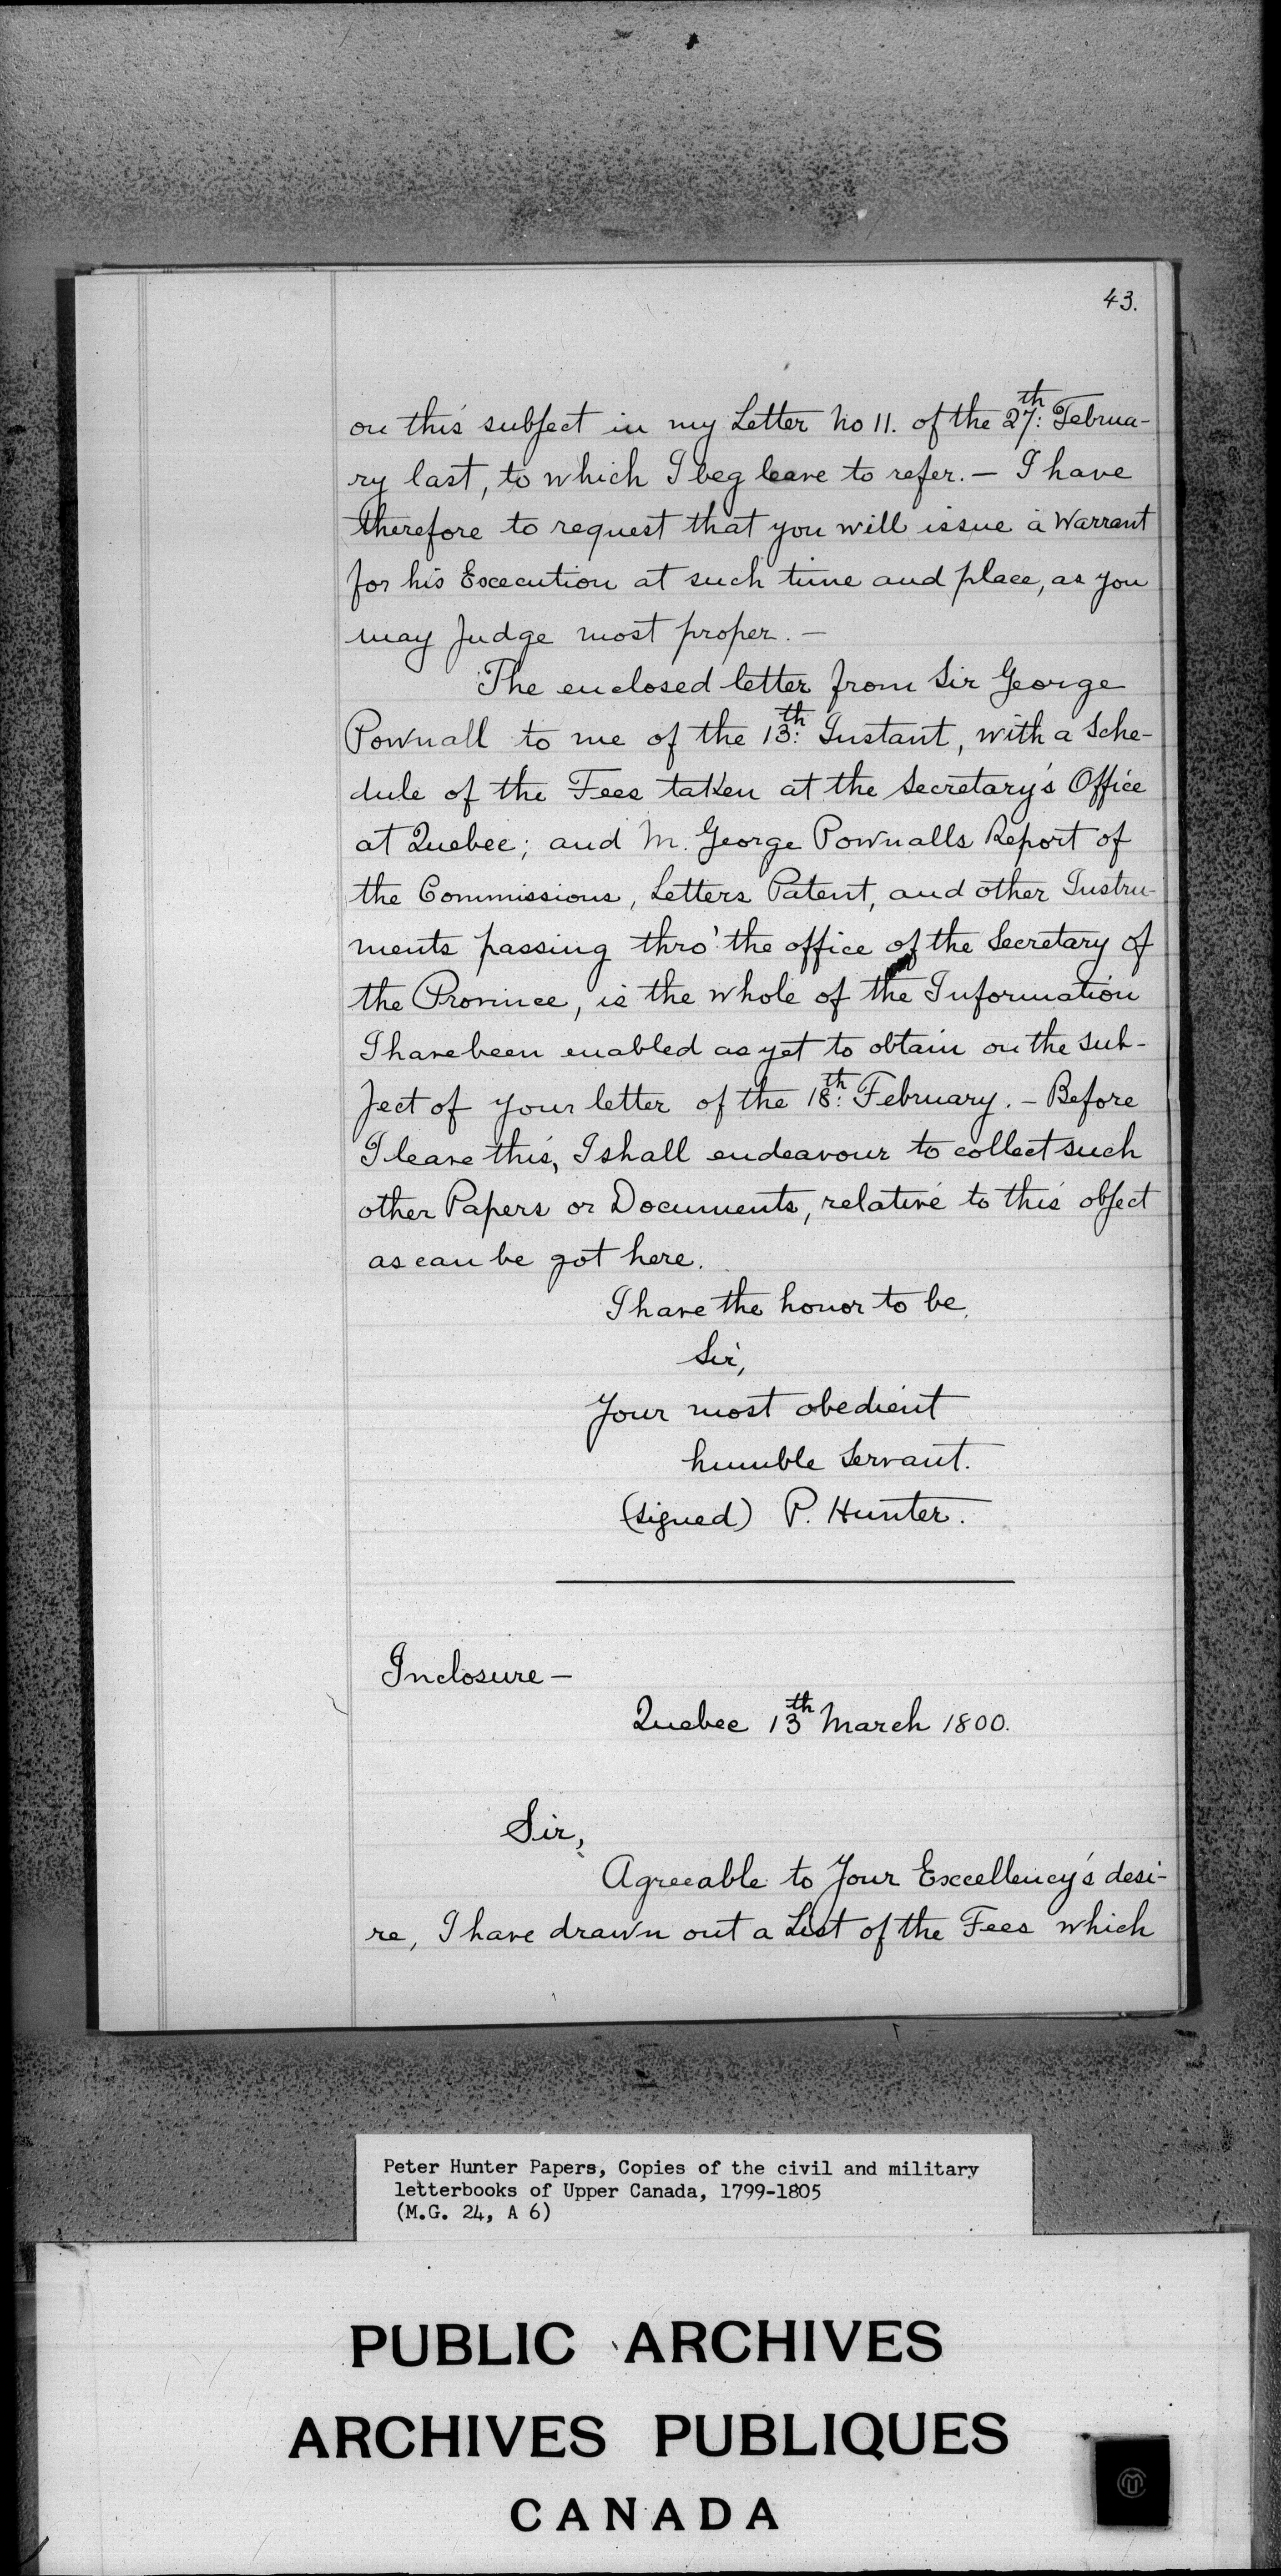 43.
on this subject in my Letter No 11. of the 27th: Februa-
ry last, to which I beg leave to refer. — I have
therefore to request that you will issue a Warrant
for his Execution at such time and place, as you
may Judge most proper. —
The enclosed letter from Sir George
Pownall to me of the 13th: Instant, with a Sche-
dule of the Fees taken at the Secretary's Office
at Quebec; and M. George Pownalls Report of
the Commissions, Letters Patent, and other Instru-
ments passing thro' the office of the Secretary of
the Province, is the whole of the Information
I have been enabled as yet to obtain on the sub-
ject of your letter of the 18th: February. — Before
I leave this, I shall endeavour to collect such
other Papers or Documents, relative to this object
as can be got here.
I have the honor to be,
Sir,
Your most obedient
humble Servant.
(signed) P. Hunter.
Inclosure —
Quebec 13th March 1800.
Sir,
Agreeable to Your Excellency's desi-
re, I have drawn out a List of the Fees which
Peter Hunter Papers, Copies of the civil and military
letterbooks of Upper Canada, 1799-1805
(M.G. 24, A 6)
PUBLIC ARCHIVES
ARCHIVES PUBLIQUES
CANADA